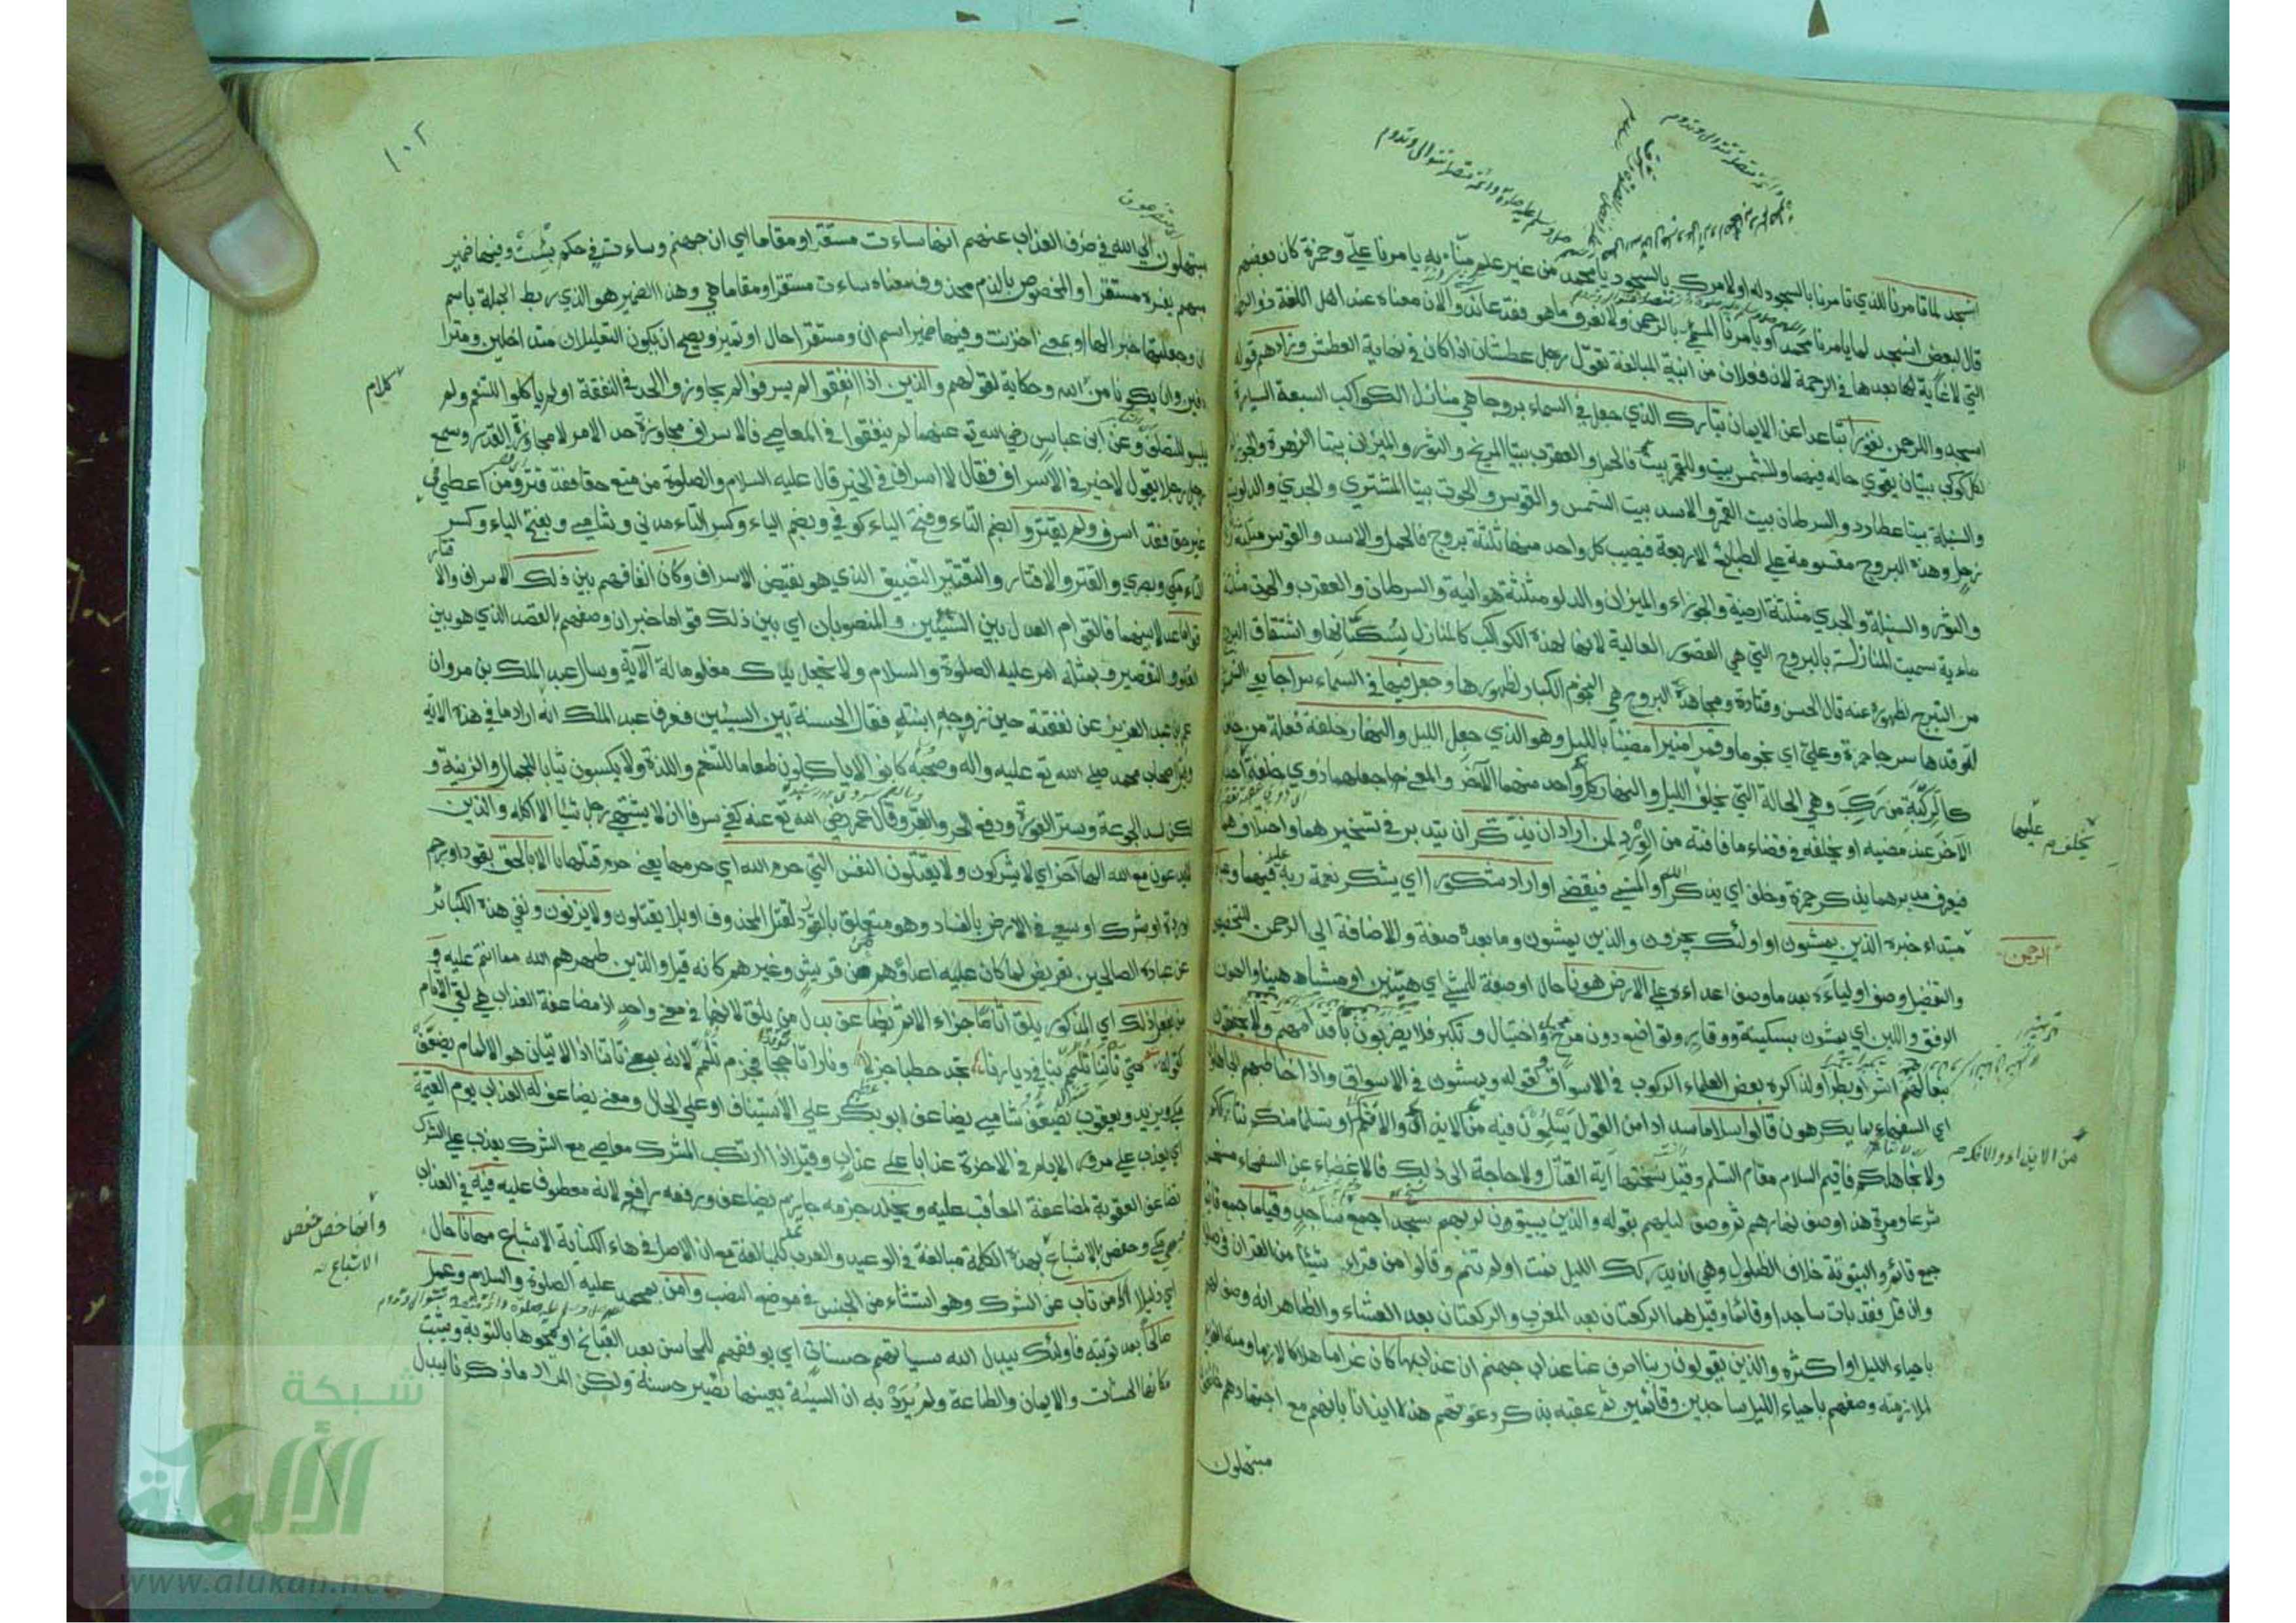 انسجد لما تأمرنا للذي تأمرنا بالسجود له او لامرك بالسجود يا محمد من غير علم منّا به يأمرنا عليّ وحمزة كان بعضهم
قال لبعض انسجد لما يأمرنا محمد او يأمرنا المسمى بالرحمن ولا نعرف ما هو فقد عاندوا لان معناه عند اهل اللغة ذو الرحمة
التي لا غاية لها بعدها في الرحمة لان فعلان من ابنية المبالغة تقول رجل عطشان اذا كان في نهاية العطش وزادهم قوله
اسجدوا للرحمن نفورا تباعدا عن الايمان تبارك الذي جعل في السماء بروجا هي منازل الكواكب السبعة السيارة
لكل كوكب بيتان يقوي حاله فيهما وللشمس بيت وللقمر بيت فالحمل والعقرب بيتا المريخ والثور والميزان بيتا الزهرة والجوزاء
والسنبلة بيتا عطارد والسرطان بيت القمر والاسد بيت الشمس والقوس والحوت بيتا المشتري والجدي والدلو بيتا
زحل وهذه البروج مقسومة علي الطبائع الاربعة فيصيب كل واحد منها ثلثة بروج فالحمل والاسد والقوس مثلثة نارية
والثور والسنبلة والجدي مثلثة ارضية والجوزاء والميزان والدلو مثلثة هوائية والسرطان والعقرب والحوت مثلثة
مائية سميت المنازل بالبروج التي هي القصور العالية لانها لهذه الكواكب كالمنازل لسكانها واشتقاق البرج
من التبرج لظهوره عنه قال الحسن وقتادة ومجاهد البروج هي النجوم الكبار لظهورها وجعل فيها في السماء سراجا يعني الشمس
لتوقدها سرجا حمزة وعلي اي نجوما وقمرا منيرا مضيئا بالليل وهو الذي جعل الليل والنهار خلفة فعلة من خلف
كالركبة من ركب وهي الحالة التي يخلف الليل والنهار كل واحد منهما الآخر والمعني جعلهما ذوي خلفة
الآخر عند مضيه او يخلفه في قضاء ما فاته من الورد لمن اراد ان يذكر ان يتدبر في تسخيرهما واختلافهما
فيعرف مدبرهما يذكر حمزة وخلف اي يذكر الله او المنسي فيقضي او اراد شكورا اي يشكر نعمة ربه عليه فيهما وعباد
الرحمن
مبتداء خبره الذين يمشون او اولئك يجزون والذين يمشون وما بعده صفة والاضافة الي الرحمن للتخصيص
والتفضيل وصف اولياءه بعد ما وصف اعداءه علي الارض هونا حال او صفة للمشي اي هينين او مشياه هينا والهون
الرفق واللين اي يمشون بسكينة ووقار وتواضع دون مرح واختيال وتكبر فلا يضربون باقدامهم ولا يخفقون
بنعالهم اشرا وبطرا ولذا كره بعض العلماء الركوب في الاسواق لقوله ويمشون في الاسواق واذا خاطبهم الجاهلون
اي السفهاء بما يكرهون قالوا سلاما سدادا من القول يسلمون فيه من الايذاء والافك او تسلما منكم نتارككم
من الايذاء والافك
ولا نجاهلكم فاقيم السلام مقام التسلم وقيل نسختها آية القتال ولا حاجة الي ذلك فالاغضاء عن السفهاء مستحسن
شرعا ومروة هذا وصف نهارهم ثم وصف ليلهم بقوله والذين يبيتون لربهم سجدا جمع ساجد وقياما جمع قائم
جمع قائم والبيتوتة خلاف الظلول وهي ان يدركك الليل نمت او لم تنم وقالوا من قرأ شيئا من القرآن في صلاة
وان قل فقد بات ساجدا وقائما وقيل هما الركعتان بعد المغرب والركعتان بعد العشاء والظاهر انه وصف لهم
باحياء الليل او اكثره والذين يقولون ربنا اصرف عنا عذاب جهنم ان عذابها كان غراما هلاكا لازما ومنه الغريم
لملازمته وصفهم باحياء الليل ساجدين وقائمين ثم عقبه بذكر دعوتهم هذه ايذانا بانهم مع اجتهادهم خائفون
مبتهلون
١٠٢
مبتهلون الي الله في صرف العذاب عنهم انها ساءت مستقرا ومقاما اي ان جهنم وساءت في حكم بئست وفيها ضمير
مبهم يفسره مستقرا والمخصوص بالذم محذوف معناه ساءت مستقرا ومقاما هي وهذا الضمير هو الذي ربط الجملة باسم
ان وجعلها خبرا لها او بمعني احزنت وفيها ضمير اسم ان ومستقرا حال او تمييز ويصح ان يكون التعليلان متداخلين ومترا
دفين وان يكونا من كلام الله وحكاية لقولهم والذين اذا انفقوا لم يسرفوا لم يجاوزوا الحد في النفقة او لم يأكلوا للتنعم ولم
يلبسوا للتصلف وعن ابن عباس رضي الله تع عنهما لم ينفقوا في المعاصي فالاسراف مجاوزة حد الامر لا مجاوزة القدر وسمع
رجل رجلا يقول لا خير في الاسراف فقال لا اسراف في الخير قال عليه السلام والصلوة من منع حقا فقد قتر ومن اعطي في
غير حق فقد اسرف ولم يقتروا بضم التاء وفتح الياء كوفي وبضم الياء وكسر التاء مدني وشامي وبفتح الياء وكسر
التاء مكي وبصري والقتر والاقتار والتقتير التضييق الذي هو نقيض الاسراف وكان انفاقهم بين ذلك الاسراف والاقتار
قواما عدلا بينهما فالقوام العدل بين الشيئين والمنصوبان اي بين ذلك قواما خبران وصفهم بالقصد الذي هو بين
الغلو والتقصير وبمثله امر عليه الصلوة والسلام ولا تجعل يدك مغلولة الآية وسال عبد الملك بن مروان
عمر بن عبد العزيز عن نفقته حين زوجه ابنته فقال الحسنة بين السيئين فعرف عبد الملك انه اراد ما في هذه الاية
وقيل اصحاب محمد صلي الله تع عليه واله وصحبه كانوا لا ياكلون طعاما للتنعم واللذة ولا يلبسون ثيابا للجمال والزينة و
لكن لسد الجوعة وستر العورة ودفع الحر والقر وقال عمر رضي الله تع عنه كفي سرفا ان لا يشتهي رجل شيئا الا اكله والذين
لا يدعون مع الله الها آخر اي لا يشركون ولا يقتلون النفس التي حرم الله اي حرمها يعني حرم قتلها الا بالحق بقود او رجم
او ردة او شرك او سعي في الارض بالفساد وهو متعلق بالقتل المحذوف او بلا يقتلون ولا يزنون ونفي هذه الكبائر
عن عباده الصالحين تعريض لما كان عليه اعداؤهم من قريش وغيرهم كانه قيل والذين طهرهم الله مما انتم عليه و
من يفعل ذلك اي المذكور يلق اثاما جزاء الاثم يضاعف بدل من يلق لانهما في معني واحد اذ مضاعفة العذاب هي لقي الآثام
كقوله متي تاتنا تلمم بنا في ديارنا تجد حطبا جزلا ونارا تاججا فجزم تلمم لانه بمعني تاتنا اذ الاتيان هو الالمام يضعف
مكي ويزيد ويعقوب يضعف شامي يضاعف ابو بكر علي الاستيناف او علي الحال ومعني يضاعف له العذاب يوم القيمة
اي يعذب علي مرور الايام في الاخرة عذابا علي عذاب وقيل اذا ارتكب المشرك معاصي مع الشرك يعذب علي الشرك
تضاعف العقوبة لمضاعفة المعاقب عليه ويخلد جزمه جازم يضاعف ورفعه رافع لانه معطوف عليه فيه في العذاب
مكي وحفص بالاشباع بهذه الكلمة مبالغة في الوعيد والعرب تمد للمبالغة مع ان الاصل في هاء الكناية الاشباع مهانا حال
وانما خص حفص
الاشباع
اي ذليلا الا من تاب عن الشرك وهو استثناء من الجنس في موضع النصب وامن بمحمد عليه الصلوة والسلام وعمل
صالحا بعد توبته فاولئك يبدل الله سياتهم حسنات اي يوفقهم للمحاسن بعد القبائح او يمحوها بالتوبة ويثبت
مكانها الحسنات والايمان والطاعة ولم يرد به ان السيئة بعينها تصير حسنة ولكن المراد ما ذكرنا يبدل
شبكة
الألوكة
www.alukah.net